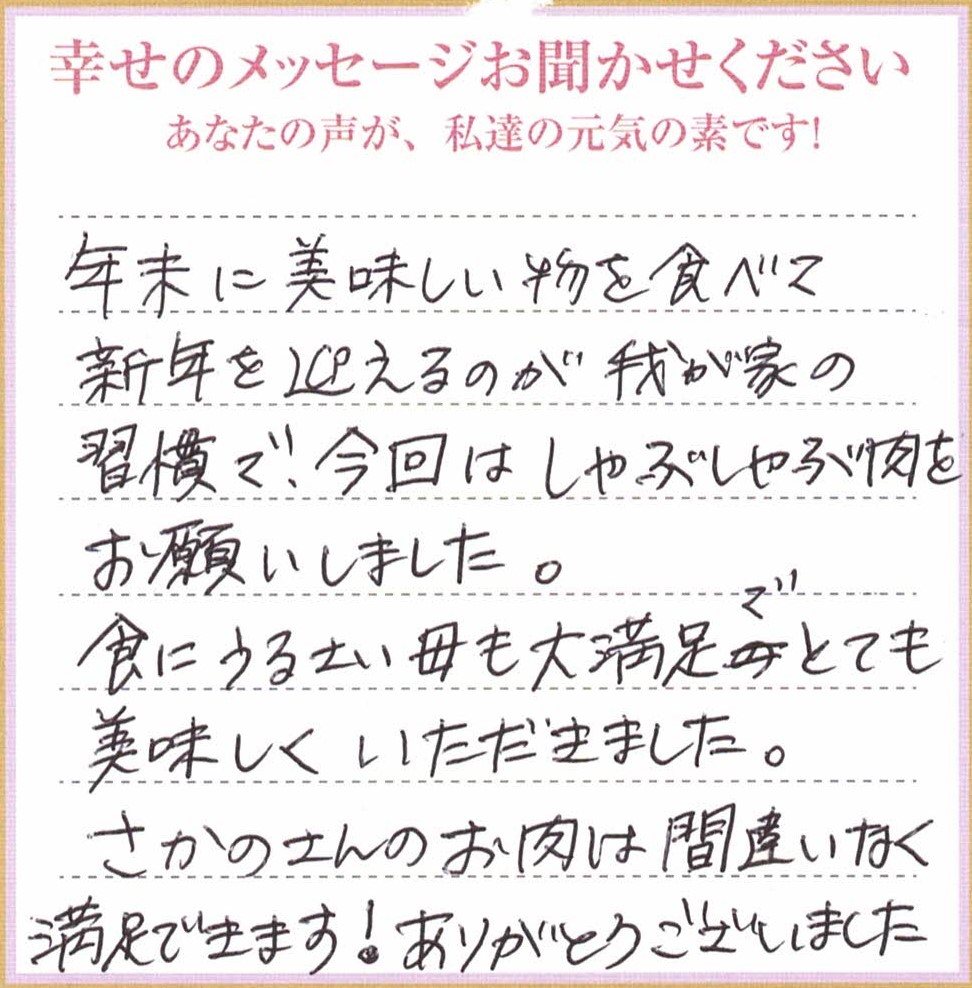 幸せのメッセージお聞かせください
あなたの声が、私達の元気の素です!
年末に美味しい物を食べて
新年を迎えるのが我が家の
習慣で!今回はしゃぶしゃぶ肉を
お願いしました。
食にうるさい母も大満足でとても
美味しくいただきました。
さかのさんのお肉は間違いなく
満足できます!ありがとうございました